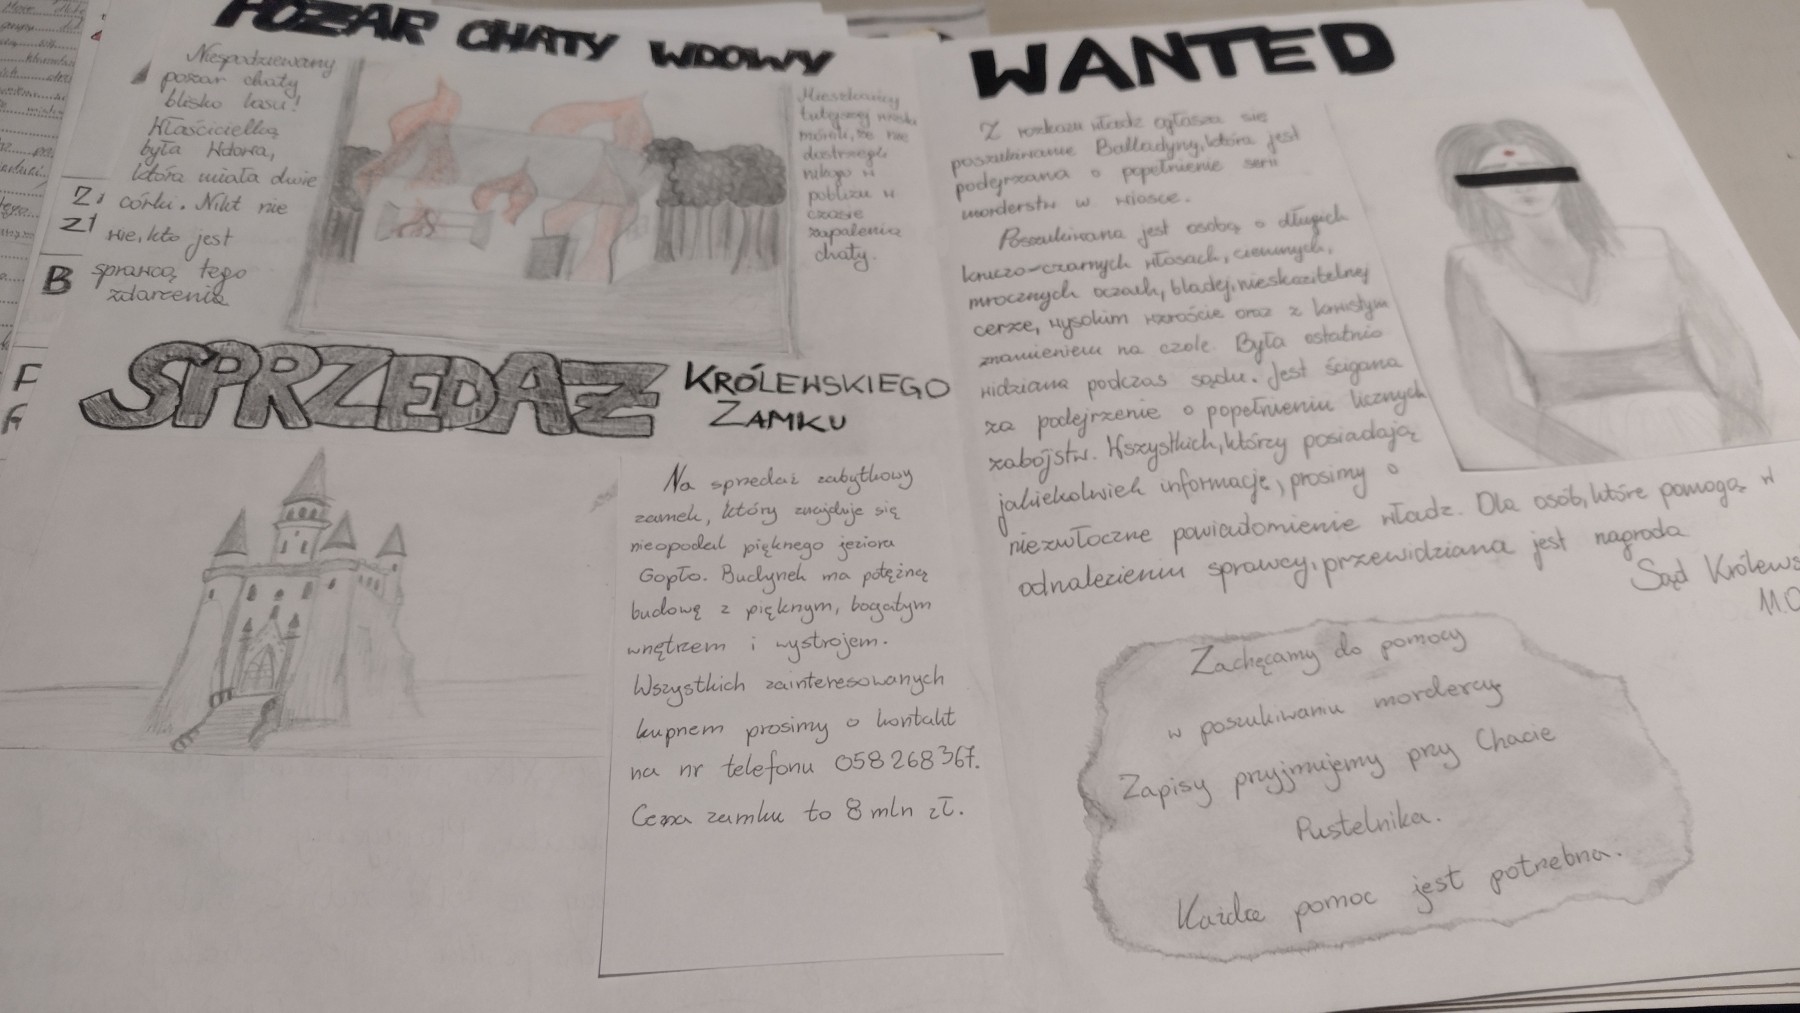 POŻAR CHATY WDOWY
Niespodziewany
pożar chaty
blisko lasu!
Właścicielką
była Wdowa,
która miała dwie
córki. Nikt nie
wie, kto jest
sprawcą tego
zdarzenia
Mieszkańcy
tutejszej wioski
mówili, że nie
dostrzegli
nikogo w
pobliżu w
czasie
zapalenia
chaty.
SPRZEDAŻ KRÓLEWSKIEGO
ZAMKU
Na sprzedaż zabytkowy
zamek, który znajduje się
nieopodal pięknego jeziora
Gopło. Budynek ma potężną
budowę z pięknym, bogatym
wnętrzem i wystrojem.
Wszystkich zainteresowanych
kupnem prosimy o kontakt
na nr telefonu 058 268 367.
Cena zamku to 8 mln zł.
WANTED
Z rozkazu władz ogłasza się
poszukiwanie Balladyny, która jest
podejrzana o popełnienie serii
morderstw w wiosce.
Poszukiwana jest osobą o długich
kruczo-czarnych włosach, ciemnych,
mrocznych oczach, bladej, nieskazitelnej
cerze, wysokim wzroście oraz z krwistym
znamieniem na czole. Była ostatnio
widziana podczas sądu. Jest ścigana
za podejrzenie o popełnieniu licznych
zabójstw. Wszystkich, którzy posiadają
jakiekolwiek informacje, prosimy o
niezwłoczne powiadomienie władz. Dla osób, które pomogą w
odnalezieniu sprawcy, przewidziana jest nagroda
Sąd Królews
Zachęcamy do pomocy
w poszukiwaniu mordercy
Zapisy przyjmujemy przy Chacie
Pustelnika.
Każda pomoc jest potrzebna.